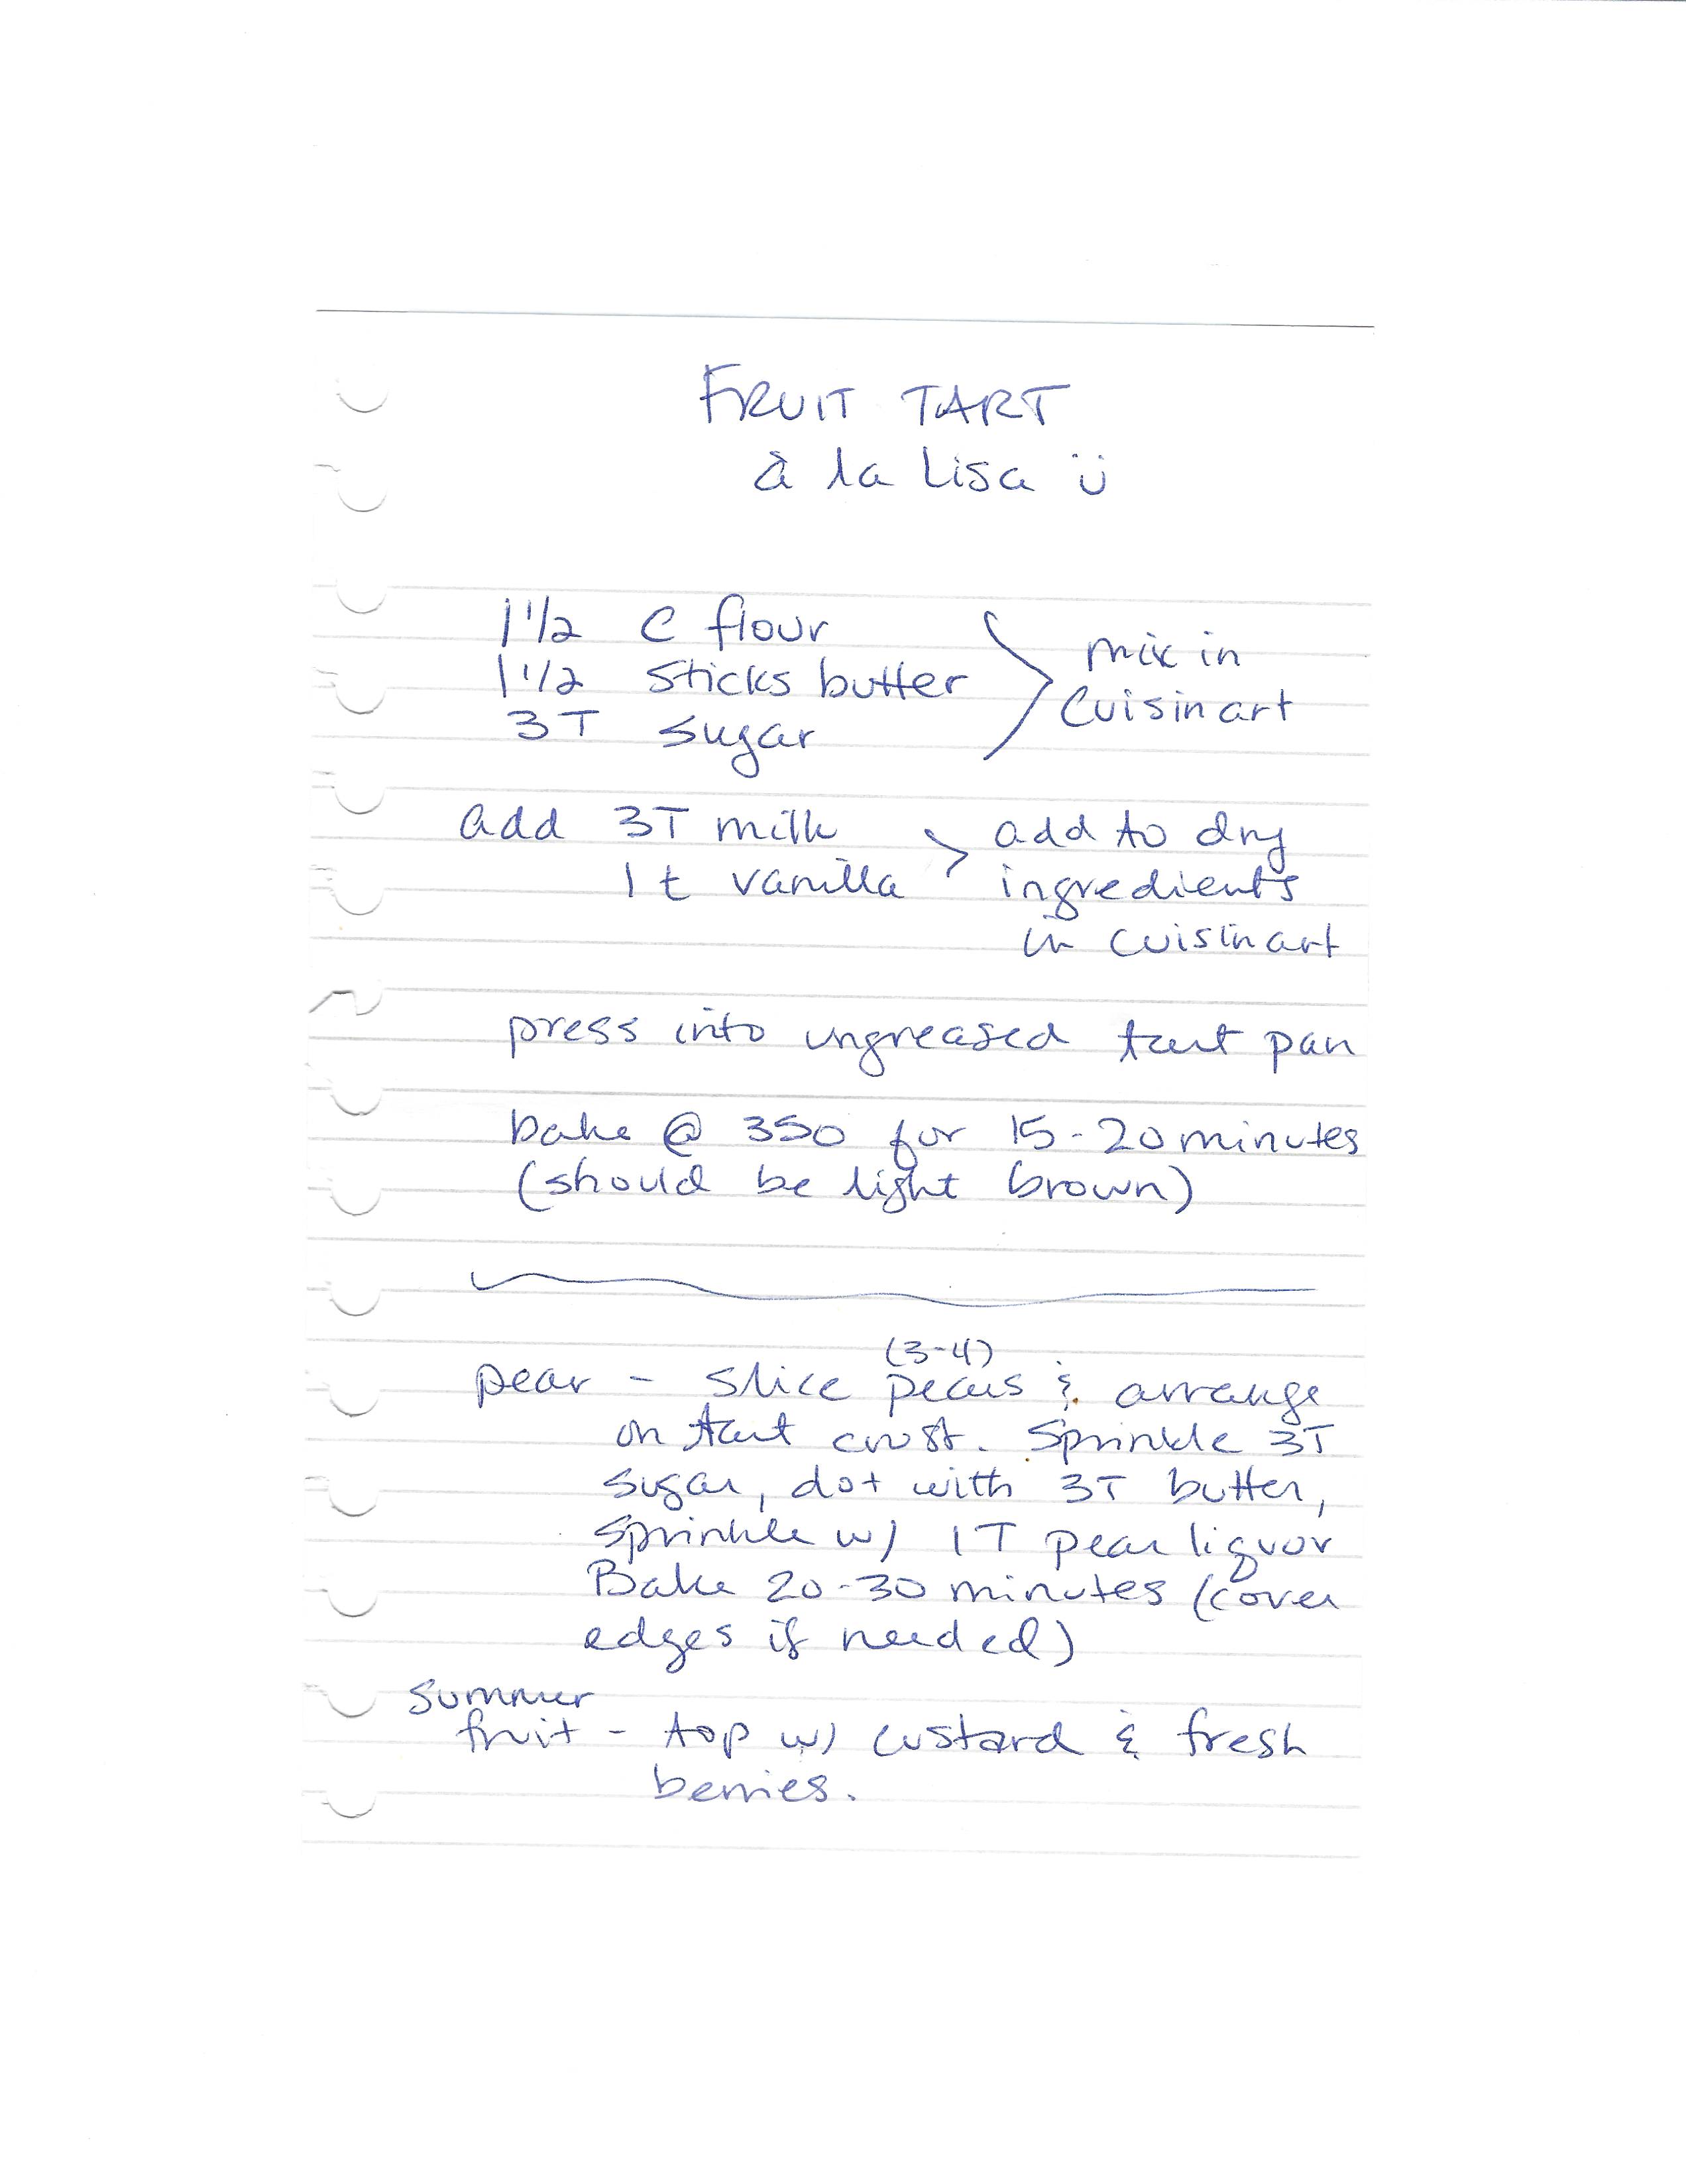 FRUIT TART
à la Lisa ü
1 1/2 C flour
1 1/2 sticks butter
3T sugar
mix in
Cuisinart
add 3T milk
1 t vanilla
add to dry
ingredients
in cuisinart
press into ungreased tart pan
bake @ 350 for 15-20 minutes
(should be light brown)
(3-4)
pear - slice pears & arrange
on tart crust. Sprinkle 3T
sugar, dot with 3T butter,
sprinkle w/ 1T pear liquor
Bake 20-30 minutes (cover
edges if needed)
summer
fruit - top w/ custard & fresh
berries.